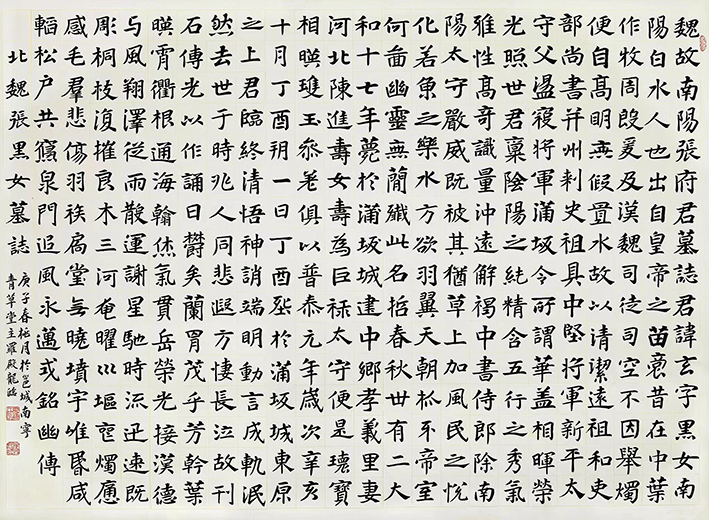 魏故南陽張府君墓誌君諱玄字黑女南
陽白水人也出自皇帝之苗裔昔在中葉
作牧周殷爰及漢魏司徒司空不因舉燭
便自高明無假置水故以清潔遠祖和吏
部尚書并州刾史祖具中堅將軍新平太
守父盪寇將軍蒲坂令所謂華蓋相暉榮
光照世君稟陰陽之純精含五行之秀氣
雅性高奇識量沖遠解褐中書侍郎除南
陽太守嚴威既被其猶草上加風民之悅
化若魚之樂水方欲羽翼天朝抓牙帝室
何啚幽靈無簡殲此名哲春秋卅有二大
和十七年薨於蒲坂城建中鄉孝義里妻
河北陳進壽女壽為巨祿太守便是瓌寶
相暎瓊玉參差俱以普泰元年歲次辛亥
十月丁酉朔一日丁酉塟於蒲坂城東原
之上君臨終清悟神誚端明動言成軌泯
然去世于時兆人同悲遐方悽長泣故刊
石傳光以作誦曰欝矣蘭胄茂乎芳幹葉
暎霄衢根通海翰烋氣貫岳榮光接漢德
与風翔澤從雨散運謝星馳時流迅速既
彫桐枝復摧良木三河奄曜巛塸寊燭痛
感毛羣悲傷羽袟扃堂無曉墳宇唯昏咸
韜松戶共寢泉門追風永邁式銘幽傳
北魏張黑女墓誌
庚子春桃月於邕城南寧
青草堂主羅殿龍臨